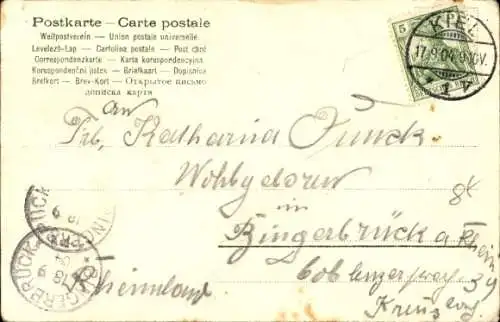 Postkarte – Carte postale
Weltpostverein – Union postale universelle.
Levelező-Lap – Cartolina postale – Post card
Correspondenzkarte – Karta korespondencyjna
Korespondenční listek – Briefkaart – Dopisnice
Brefkort – Brev-Kort – Открытое письмо
дописна карта
5
KIEL
17.9.04. 9-10V.
An
Frl. Katharina Funck
Wohlgeboren
in
Bingerbrück a Rhein
Coblenzerweg 39
Kreuz
Rheinland
BINGERBRÜCK
18 9
04